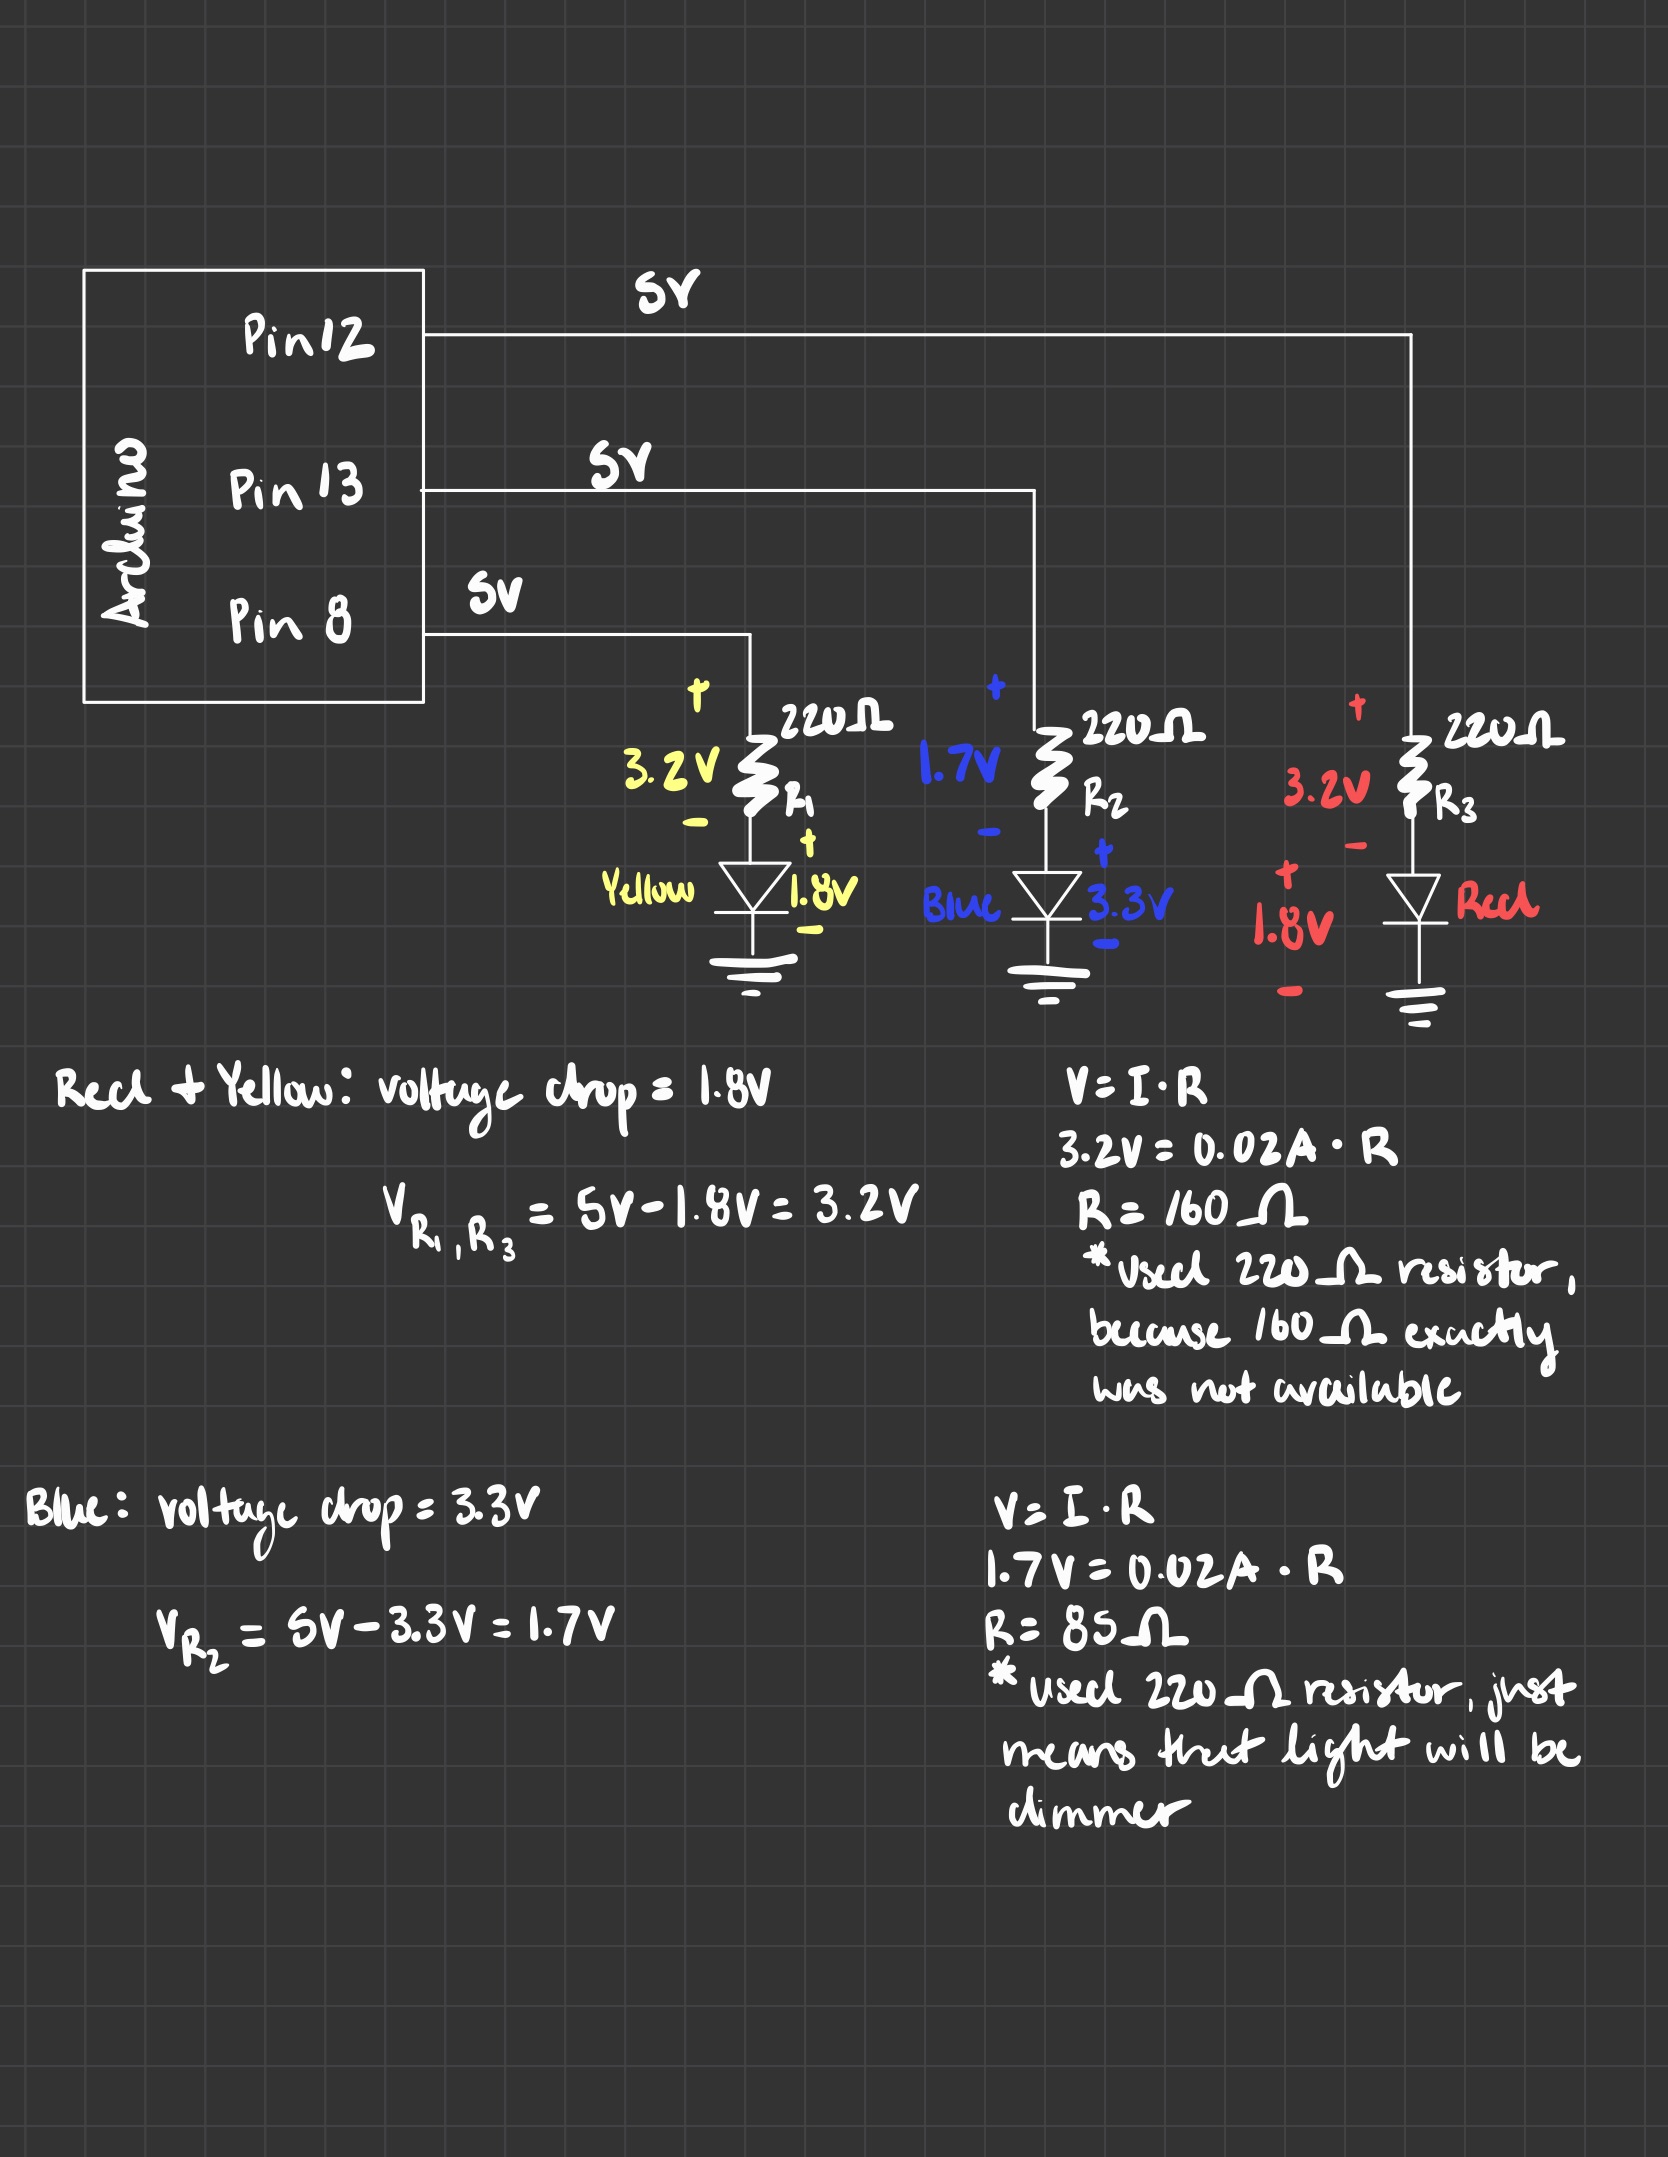 5V
Pin 12
5V
Pin 13
Arduino
5V
Pin 8
+
3.2V
-
220Ω
R1
Yellow
+
1.8V
-
+
1.7V
-
220Ω
R2
Blue
+
3.3V
-
+
3.2V
-
220Ω
R3
+
1.8V
-
Red
Red + Yellow: voltage drop = 1.8V
VR1,R3 = 5V-1.8V = 3.2V
V = I·R
3.2V = 0.02A·R
R = 160Ω
*used 220Ω resistor,
because 160Ω exactly
was not available
Blue: voltage drop = 3.3V
VR2 = 5V-3.3V = 1.7V
V = I·R
1.7V = 0.02A·R
R = 85Ω
*used 220Ω resistor, just
means that light will be
dimmer